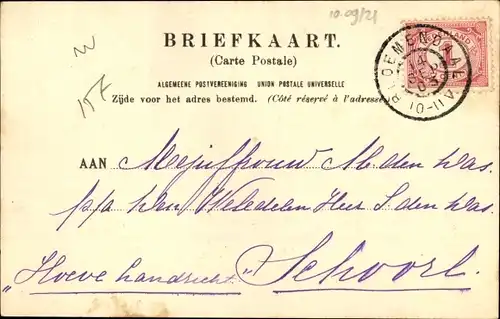 10.09/21
BRIEFKAART.
(Carte Postale)
ALGEMEENE POSTVEREENIGING UNION POSTALE UNIVERSELLE
Zijde voor het adres bestemd. (Côté réservé à l'adresse
BLOEMENDAAL
AAN Mejuffrouw M. den Has.
p/a den Weledelen Heer S. den Has.
„Hoeve Landzicht" Schoorl.